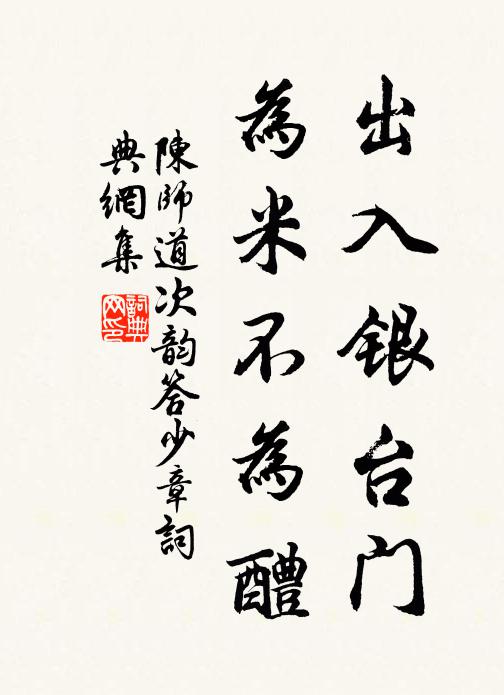 出入银台门
為米不為醴
陳師道次韵答少章詞
典網集
詞典网印